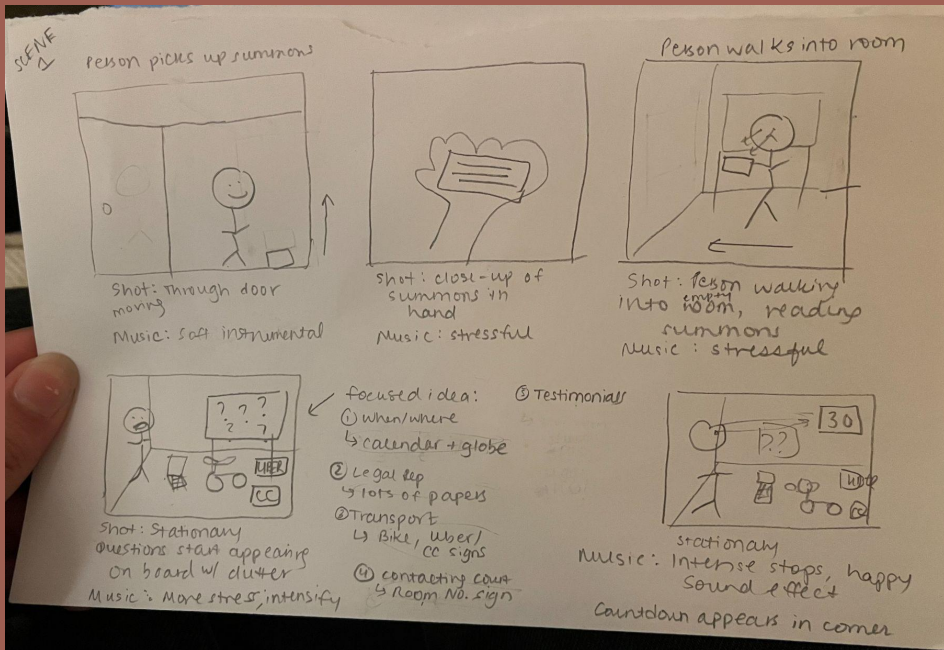 SCENE
1
Person picks up summons
Shot: Through door
moving
Music: Soft instrumental
Shot: close-up of
summons in
hand
Music: stressful
Person walks into room
Shot: Person walking
into empty room, reading
summons
Music: stressful
? ? ?
? ?
UBER
CC
Shot: Stationary
Questions start appearing
on board w/ clutter
Music: More stress, intensify
focused idea:
① When/where
↳ calendar + globe
② Legal rep
↳ lots of papers
③ Transport
↳ Bike, Uber/
CC signs
④ contacting court
↳ Room No. sign
⑤ Testimonials
30
??
CC
Stationary
Music: Intense stops, happy
Sound effect
Countdown appears in corner